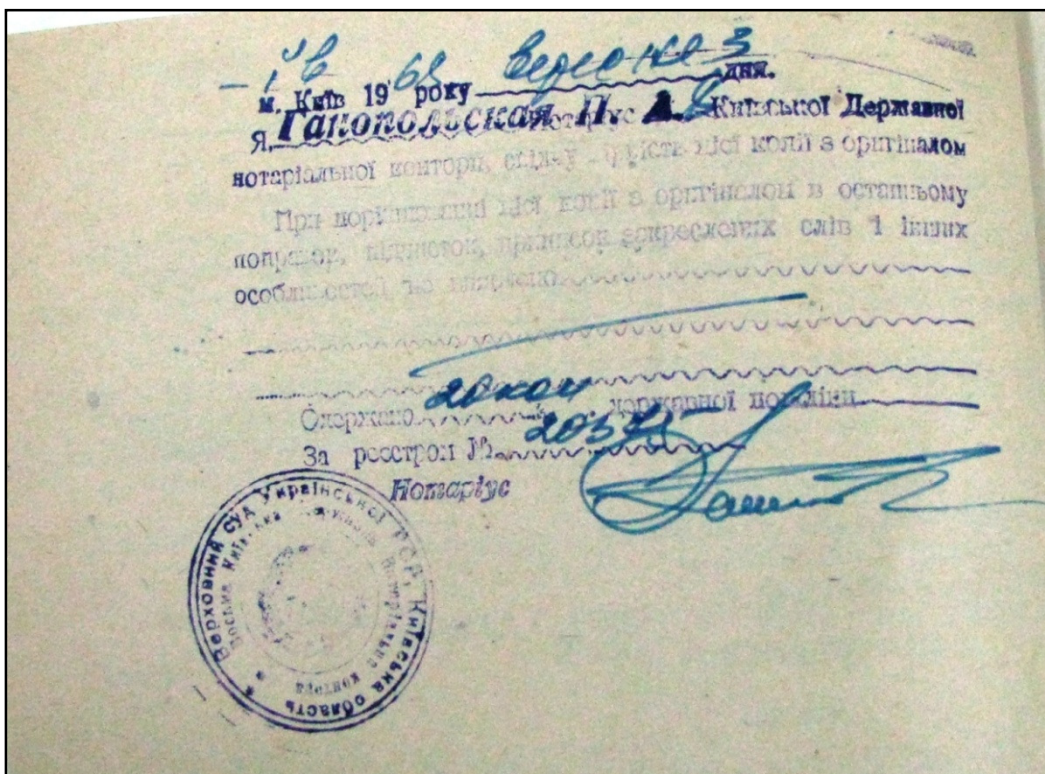 м. Київ 1968 року вересня 3 дня.
Я, Ганопольская П. А. нотаріус 8 Київської Державної
нотаріальної контори, свідчу вірність цієї копії з оригіналом
При порівнянні цієї копії з оригіналом в останньому
поправок, підчисток, приписок закреслених слів і інших
особливостей не виявлено
Одержано 20 коп державної пошліни
За реєстром №
Нотаріус
Верховний суд Української РСР, Київська область
Восьма Київська Державна Нотаріальна контора